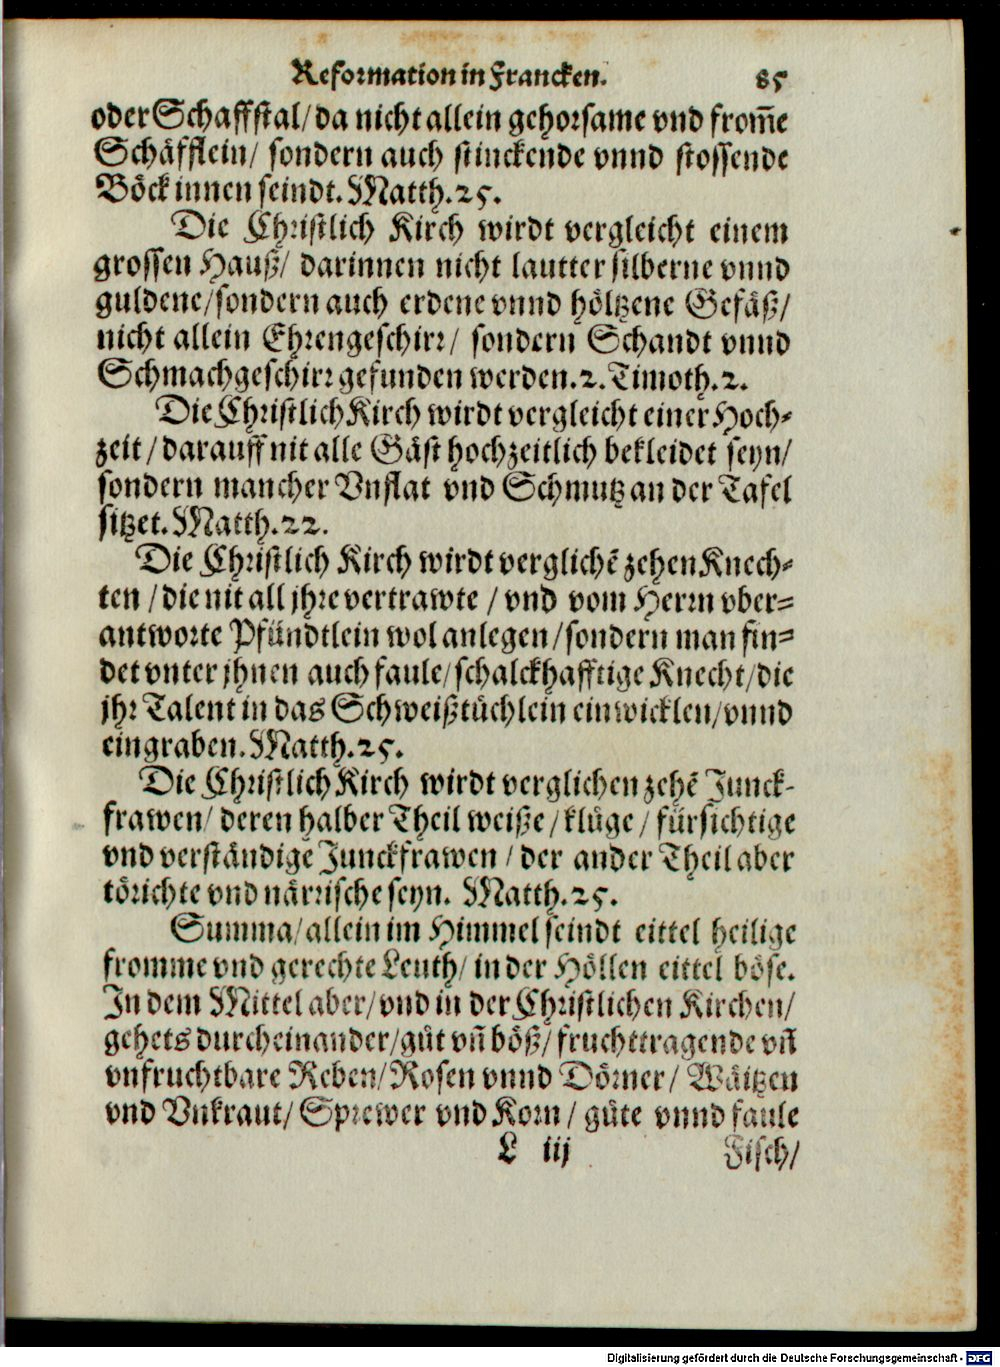 Reformation in Francken. 85
oder Schaffstal/ da nicht allein gehorsame vnd from̃e
Schäfflein/ sondern auch stinckende vnnd stossende
Böck innen seindt. Matth. 25.
Die Christlich Kirch wirdt vergleicht einem
grossen Hauß/ darinnen nicht lautter silberne vnnd
guldene/ sondern auch erdene vnnd höltzene Gefäß/
nicht allein Ehrengeschirr/ sondern Schandt vnnd
Schmachgeschirr gefunden werden. 2. Timoth. 2.
Die Christlich Kirch wirdt vergleicht einer Hoch-
zeit/ darauff nit alle Gäst hochzeitlich bekleidet seyn/
sondern mancher Vnflat vnd Schmutz an der Tafel
sitzet. Matth. 22.
Die Christlich Kirch wirdt verglichẽ zehen Knech-
ten/ die nit all jhre vertrawte/ vnd vom Herrn vber-
antworte Pfündtlein wol anlegen/ sondern man fin-
det vnter jhnen auch faule/ schalckhafftige Knecht/ die
jhr Talent in das Schweißtüchlein einwicklen/ vnnd
eingraben. Matth. 25.
Die Christlich Kirch wirdt verglichen zehẽ Junck-
frawen/ deren halber Theil weiße/ klůge/ fürsichtige
vnd verständige Junckfrawen/ der ander Theil aber
törichte vnd närrische seyn. Matth. 25.
Summa/ allein im Himmel seindt eittel heilige
fromme vnd gerechte Leuth/ in der Höllen eittel böse.
In dem Mittel aber/ vnd in der Christlichen Kirchen/
gehets durcheinander/ gůt vñ böß/ fruchttragende vñ
vnfruchtbare Reben/ Rosen vnnd Dörner/ Wäitzen
vnd Vnkraut/ Sprewer vnd Korn/ gůte vnnd faule
L iij Fisch/
Digitalisierung gefördert durch die Deutsche Forschungsgemeinschaft - DFG